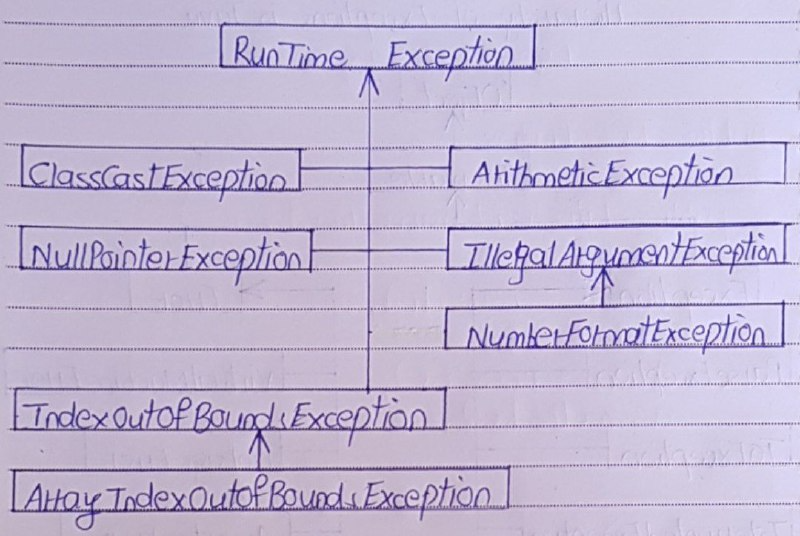 RunTime Exception
ClassCastException
ArithmeticException
NullPointerException
IllegalArgumentException
NumberFormatException
IndexOutOfBoundsException
ArrayIndexOutOfBoundsException